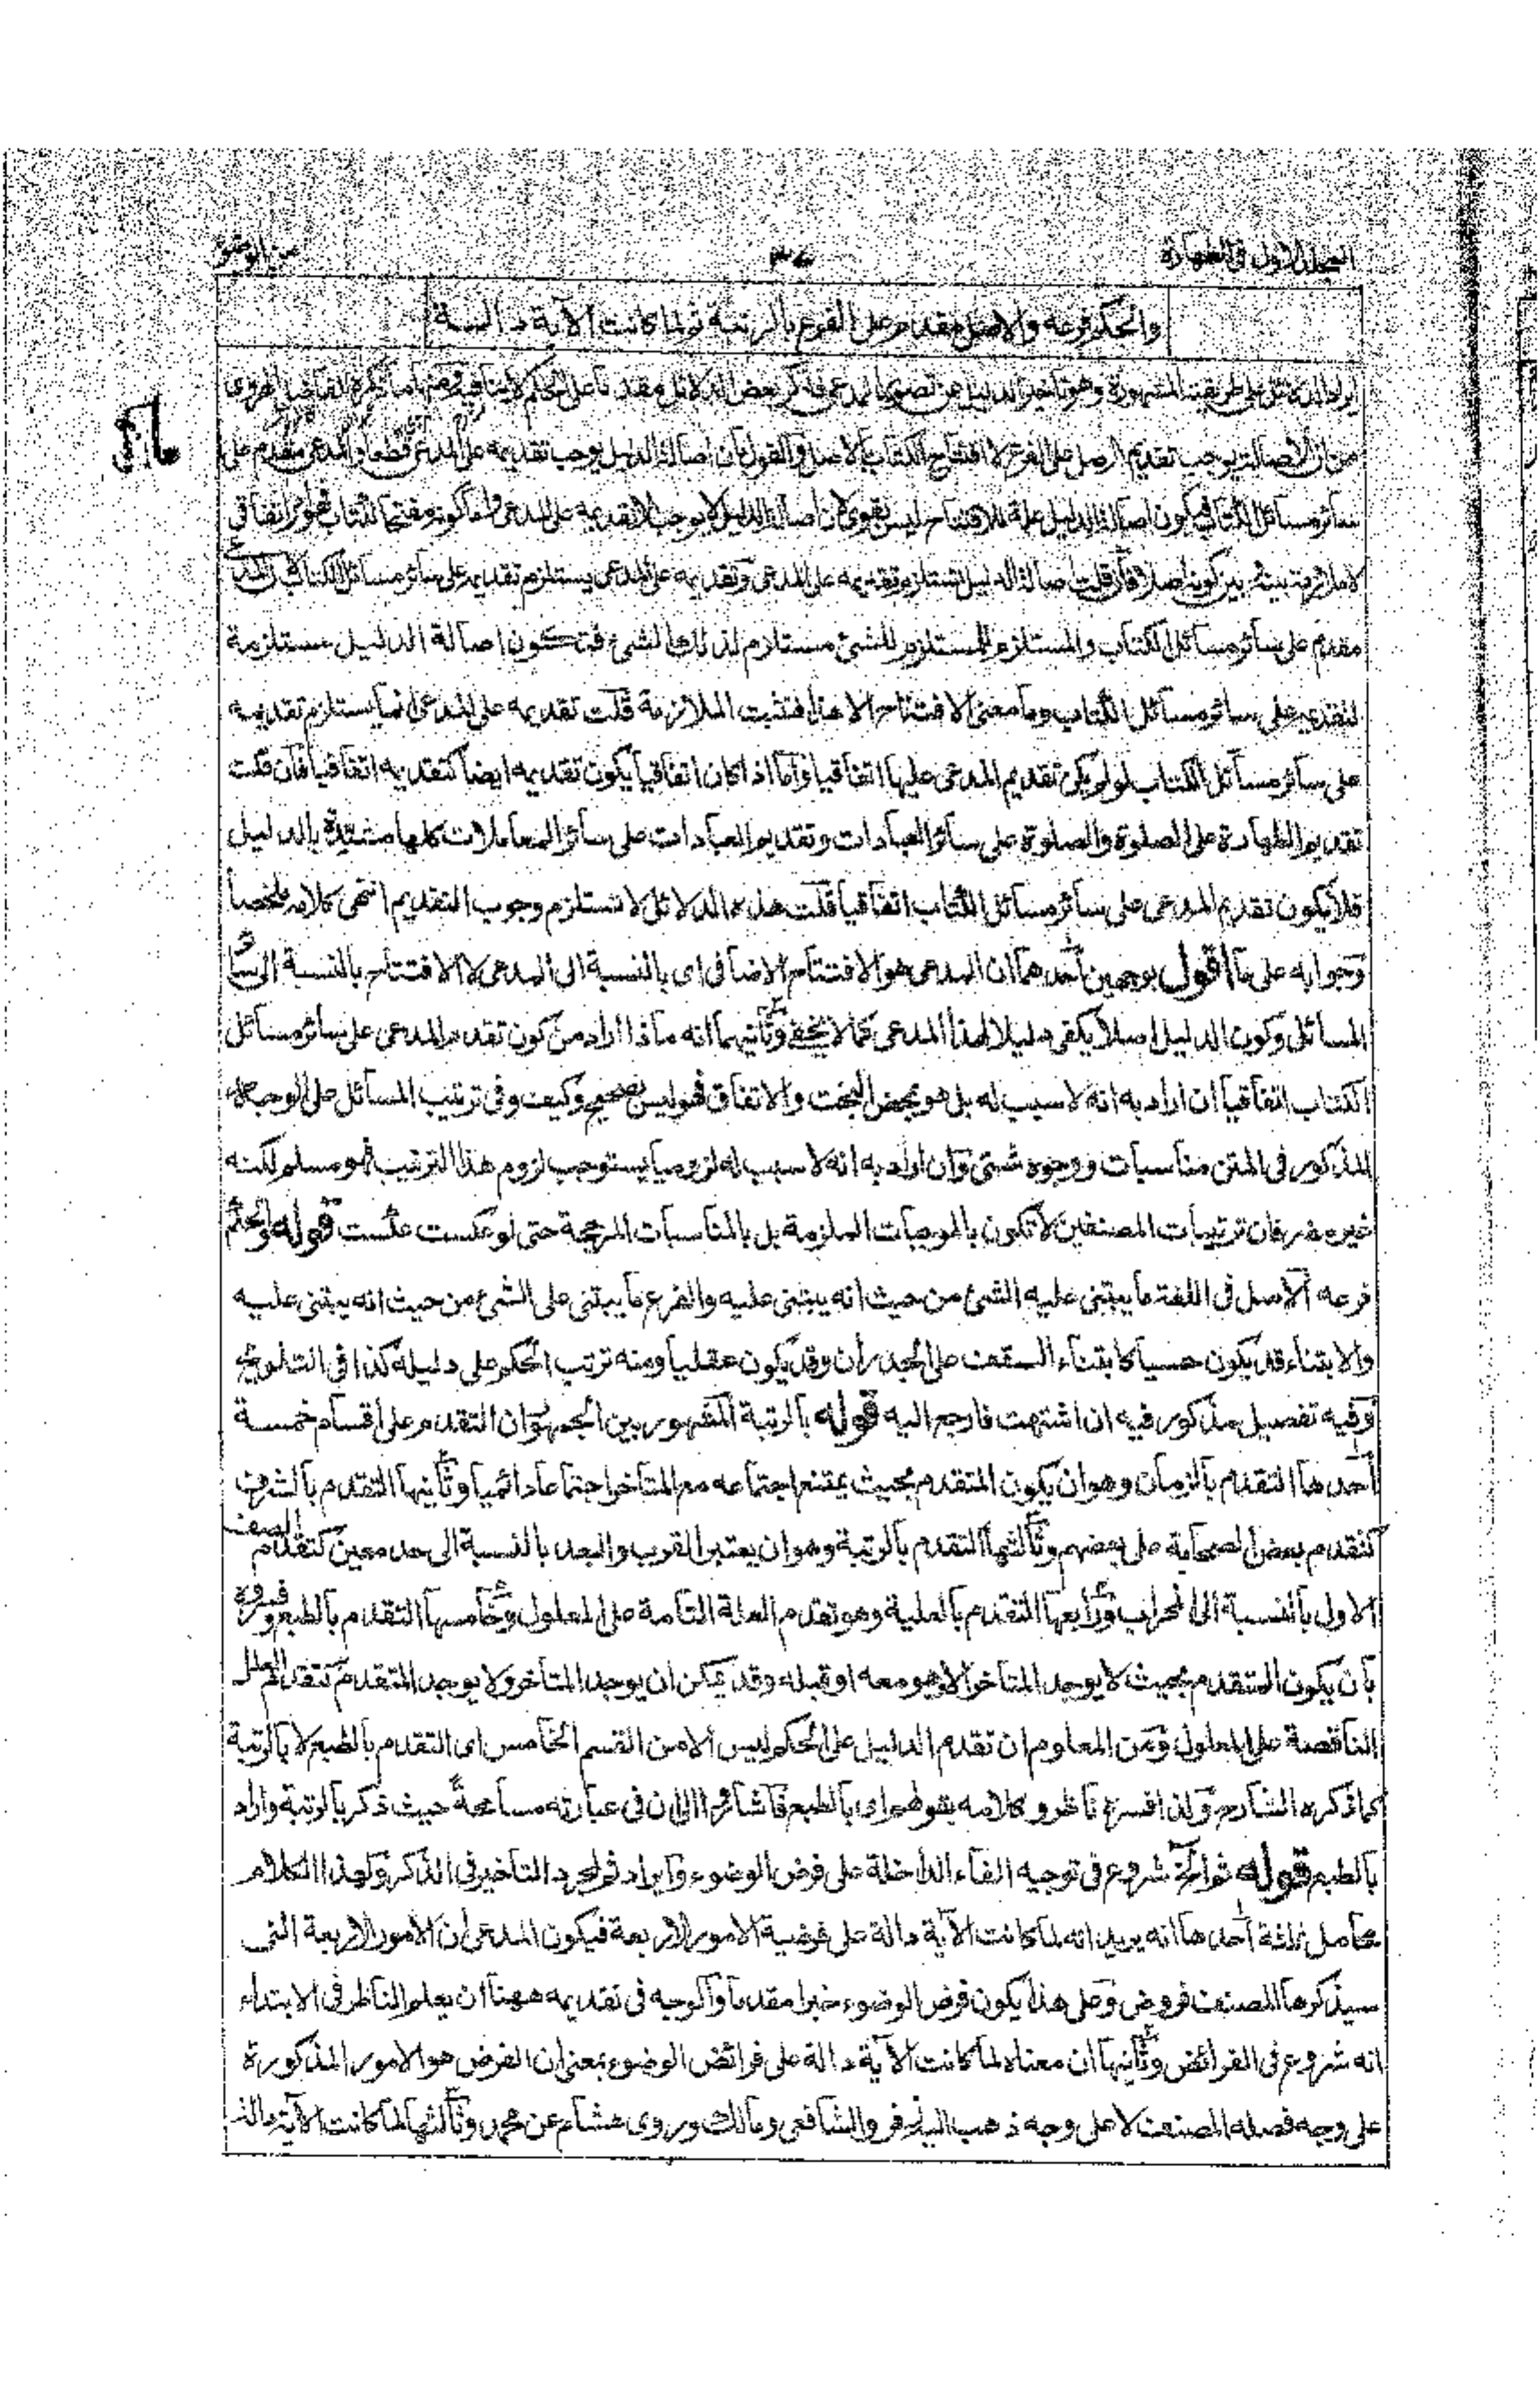 المجلد الاول فى الطهارة
والحكم فرعه والاصل مقدم على الفرع بالرتبة ثم لما كانت الآية دالـة
ايراد الدلائل على طريقته المشهورة وهو تاخير الدليل عن تصوير المدعى فذكر بعض الدلائل مقدما على الحكم لا ينافيه ومنها ما ذكره الفاضل الهروى
من ان الاصالة توجب تقديم الاصل على الفرع لا افتتاح الكتاب بالاصل والقول بان اصالة الدليل يوجب تقديمه على المدعى قطعا والمدعى مقدم على
سائر مسائل الكتاب فيكون اصالة الدليل علة للافتتاح ليس بقوى لان اصالة الدليل لا يوجب الا تقديمه على المدعى واما كونه مفتتحا للكتاب فهو اتفاقى
لا ملازمة بينه وبين كونه اصلا فان قلت اصالة الدليل تستلزم تقديمه على المدعى وتقديمه على المدعى يستلزم تقديمه على سائر مسائل الكتاب لان المدعى
مقدم على سائر مسائل الكتاب والمستلزم للمستلزم للشئ مستلزم لذلك الشئ فتكون اصالة الدليل مستلزمة
لتقديمه على سائر مسائل الكتاب وما معنى الافتتاح الا هذا فتثبت الملازمة قلت تقديمه على المدعى انما يستلزم تقديمه
على سائر مسائل الكتاب لو لم يكن تقديم المدعى عليها اتفاقيا واما اذا كان اتفاقيا يكون تقديمه ايضا كتقديمه اتفاقيا فان قلت
تقديم الطهارة على الصلوة والصلوة على سائر العبادات وتقديم العبادات على سائر المعاملات كلها مثبتة بالدليل
فلا يكون تقديم المدعى على سائر مسائل الكتاب اتفاقيا قلت هذه الدلائل لا تستلزم وجوب التقديم انتهى كلامه ملخصا
وجوابه على ما اقول بوجهين احدهما ان المدعى هو الافتتاح الاضافى اى بالنسبة الى المدعى لا الافتتاح بالنسبة الى سائر
المسائل وكون الدليل اصلا يكفى دليلا لهذا المدعى كما لا يخفى وثانيهما انه ماذا اراد من كون تقديم المدعى على سائر مسائل
الكتاب اتفاقيا ان اراد به انه لا سبب له بل هو بمحض البخت والاتفاق فهو ليس بصحيح وكيف وفى ترتيب المسائل على الوجه
المذكور فى المتن مناسبات ووجوه شتى وان اراد به انه لا سبب له لزوميا يستوجب لزوم هذا الترتيب فهو مسلم لكنه
غير مضر فان ترتيبات المصنفين لا تكون بالموجبات الملزمة بل بالمناسبات المرجحة حتى لو عكست عكست قوله والحكم
فرعه الاصل فى اللغة ما يبتنى عليه الشئ من حيث انه يبتنى عليه والفرع ما يبتنى على الشئ من حيث انه يبتنى عليه
والابتناء قد يكون حسيا كابتناء السقف على الجدران وقد يكون عقليا ومنه ترتب الحكم على دليله كذا فى التلويح
وفيه تفصيل مذكور فيه ان اشتهت فارجع اليه قوله بالرتبة المشهور بين الجمهور ان التقدم على اقسام خمسة
احدها التقدم بالزمان وهو ان يكون المتقدم بحيث يمتنع اجتماعه مع المتاخر اجتماعا دائميا وثانيها التقدم بالشرف
كتقدم بعض الصحابة على بعضهم وثالثها التقدم بالرتبة وهو ان يعتبر القرب والبعد بالنسبة الى حد معين كتقدم الصف
الاول بالنسبة الى المحراب ورابعها التقدم بالعلية وهو تقدم العلة التامة على المعلول وخامسها التقدم بالطبع وفسروه
بان يكون المتقدم بحيث لا يوجد المتاخر الا وهو معه او قبله وقد يمكن ان يوجد المتاخر ولا يوجد المتقدم كتقدم العلل
الناقصة على المعلول ومن المعلوم ان تقدم الدليل على الحكم ليس الا من القسم الخامس اى التقدم بالطبع لا بالرتبة
كما ذكره الشارح ولذا فسره ناظرو كلامه بقولهم اى بالطبع فاشاروا الى ان فى عبارته مسامحة حيث ذكر بالرتبة واراد
بالطبع قوله ثم الخ شروع فى توجيه الفاء الداخلة على فرض الوضوء وايراد ثم لمجرد التاخير فى الذكر ولهذا الكلام
محامل ثلثة احدها انه يريد انه لما كانت الآية دالة على فرضية الامور الاربعة فيكون المدعى ان الامور الاربعة التى
سيذكرها المصنف فروض وعلى هذا يكون فرض الوضوء خبرا مقدما والوجه فى تقديمه ههنا ان يعلم الناظر فى الابتداء
انه شروع فى الفرائض وثانيها ان معناه لما كانت الآية دالة على فرائض الوضوء بمعنى ان الفرض هو الامور المذكورة
على وجه فصله المصنف لا على وجه ذهب اليه زفر والشافعى ومالك وروى هشام عن محمد وثالثها لما كانت الآية دالة